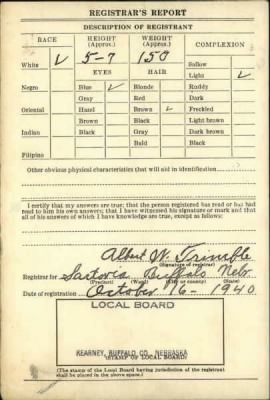 REGISTRAR'S REPORT
DESCRIPTION OF REGISTRANT
RACE HEIGHT (Approx.) WEIGHT (Approx.) COMPLEXION
White ✓ 5-7 150 Sallow
EYES HAIR Light ✓
Negro Blue ✓ Blonde Ruddy
Gray Red Dark
Oriental Hazel Brown ✓ Freckled
Brown Black Light brown
Indian Black Gray Dark brown
Bald Black
Filipino
Other obvious physical characteristics that will aid in identification
I certify that my answers are true; that the person registered has read or has had
read to him his own answers; that I have witnessed his signature or mark and that
all of his answers of which I have knowledge are true, except as follows:
Albert W. Trimble
(Signature of registrar)
Registrar for Sartoria Buffalo Nebr.
(Precinct) (Ward) (City or county) (State)
Date of registration October 16 - 1940
LOCAL BOARD
KEARNEY, BUFFALO CO., NEBRASKA
(STAMP OF LOCAL BOARD)
(The stamp of the Local Board having jurisdiction of the registrant
shall be placed in the above space.)